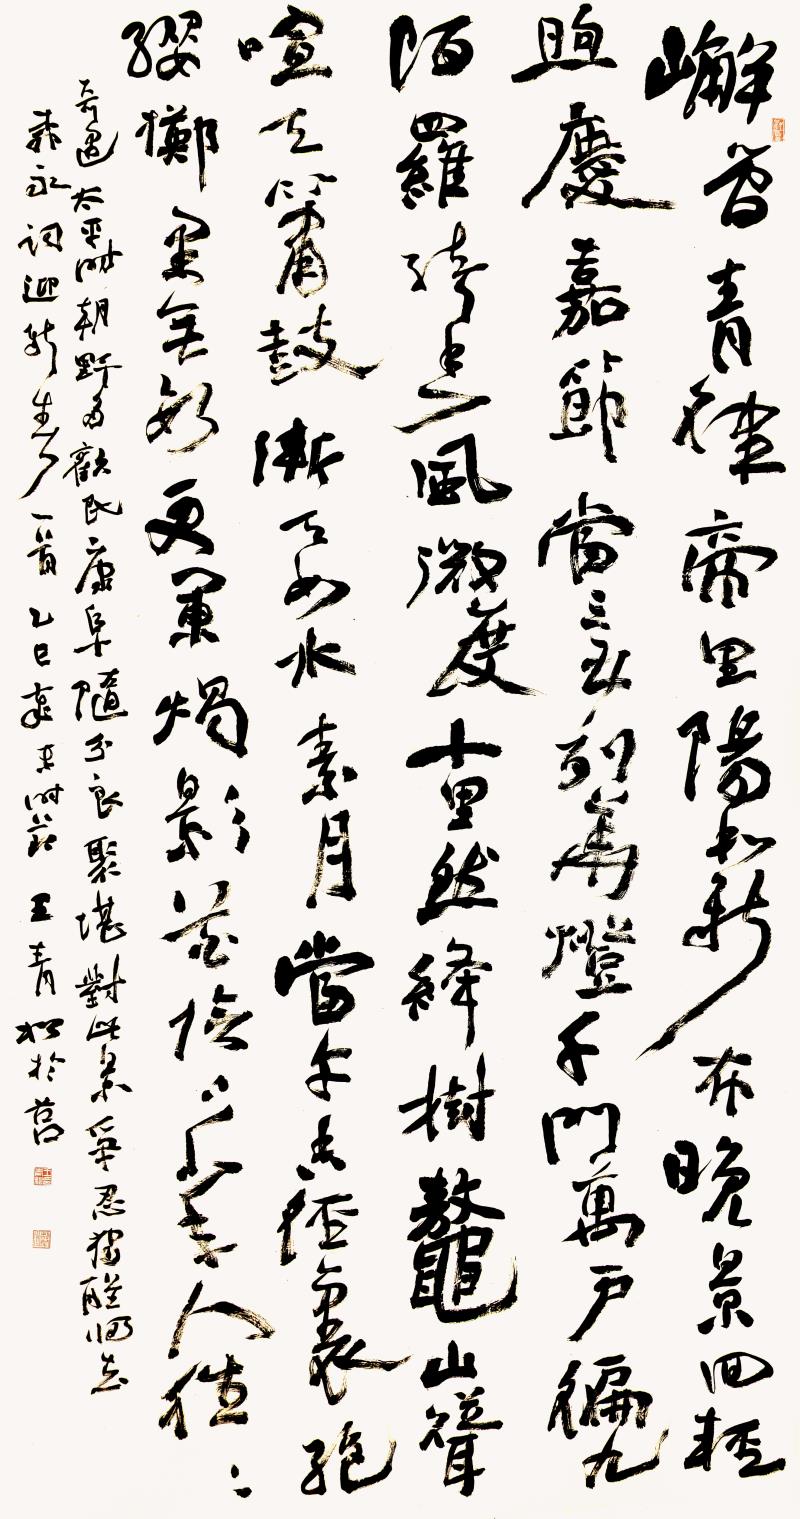 嶰管青律帝里陽和新布晚景回輕
煦慶嘉節當三五列華燈千門萬戶徧九
陌羅綺香風微度十里然絳樹鼇山聳
喧天簫鼓漸天如水素月當午香徑裏絕
纓擲果無數更闌燭影花陰下少年人往〻
奇遇太平時朝野多歡民康阜隨分良聚堪對此景爭忍獨醒歸去
柳永詞迎新春一首乙巳時節王青松於莒